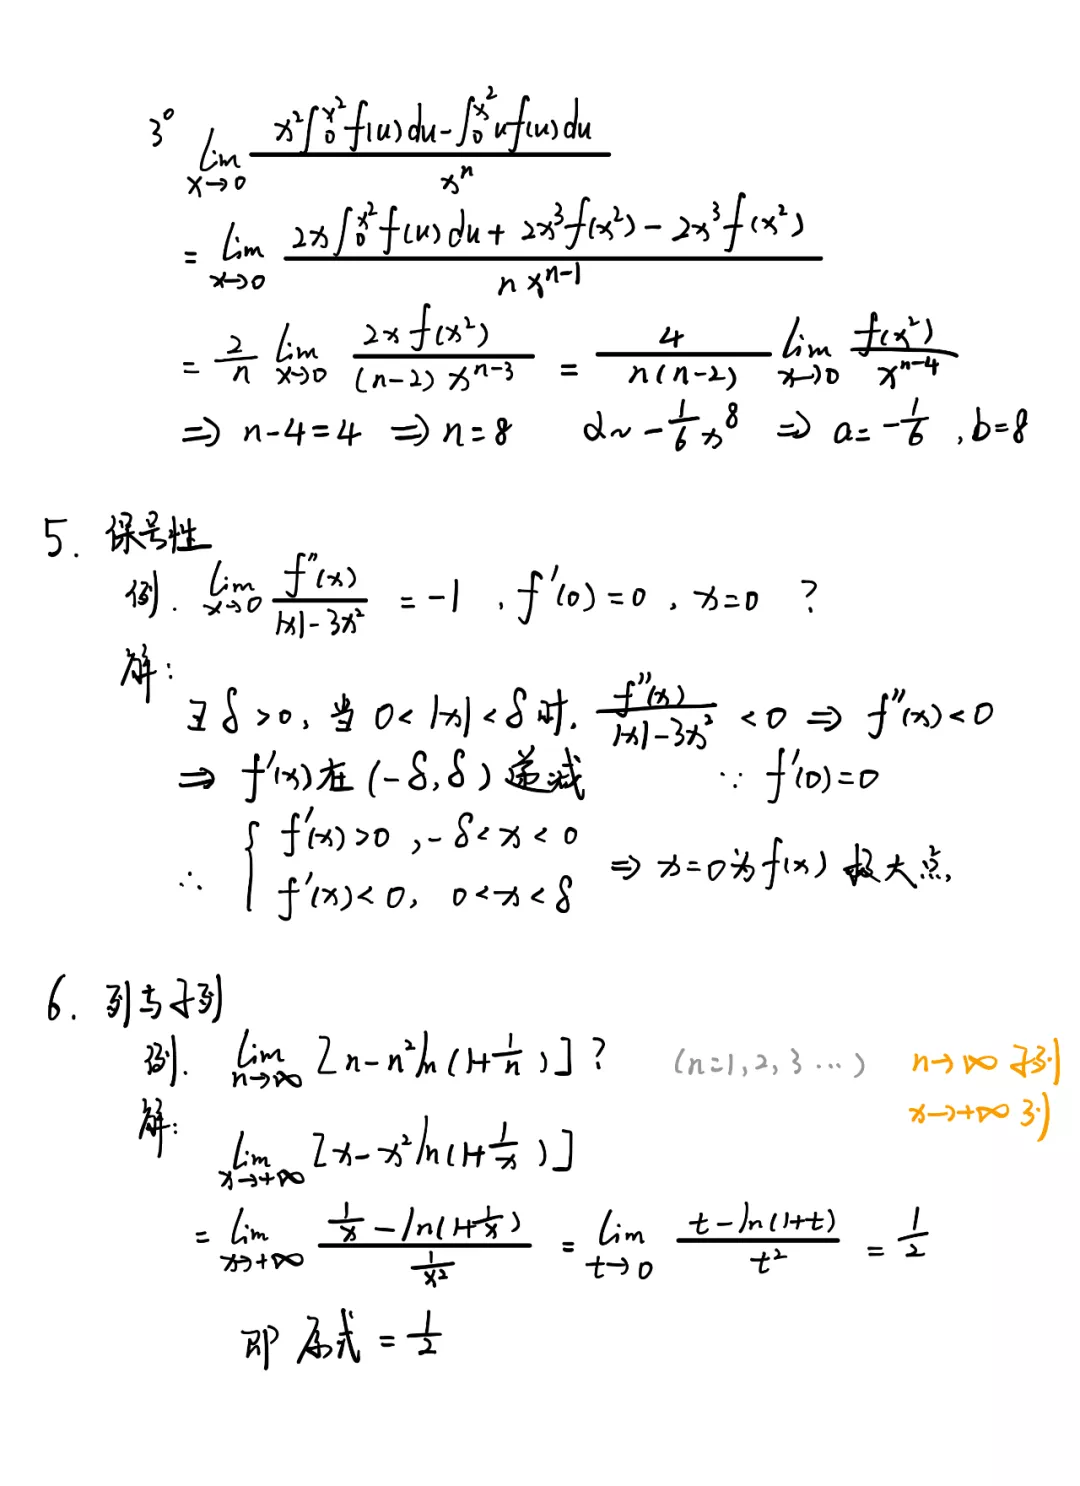 3° lim_{x→0} \frac{x²∫_0^{x²} f(u)du - ∫_0^{x²} uf(u)du}{x^n}
= lim_{x→0} \frac{2x∫_0^{x²} f(u)du + 2x³f(x²) - 2x³f(x²)}{n x^{n-1}}
= \frac{2}{n} lim_{x→0} \frac{2x f(x²)}{(n-2) x^{n-3}} = \frac{4}{n(n-2)} lim_{x→0} \frac{f(x²)}{x^{n-4}}
⇒ n-4=4 ⇒ n=8 α ~ -\frac{1}{6}x^8 ⇒ a=-\frac{1}{6}, b=8
5. 保号性
例. lim_{x→0} \frac{f''(x)}{|x|-3x²} = -1, f'(0)=0, x=0 ?
解:
∃ δ>0, 当 0<|x|<δ 时, \frac{f''(x)}{|x|-3x²} <0 ⇒ f''(x)<0
⇒ f'(x)在(-δ,δ)递减 ∵ f'(0)=0
∴ { f'(x)>0, -δ<x<0
f'(x)<0, 0<x<δ ⇒ x=0为f(x)极大点.
6. 列与子列
例. lim_{n→∞} [n-n²ln(1+\frac{1}{n})] ? (n=1,2,3 ⋯) n→∞ 子列
x→+∞ 列
解:
lim_{x→+∞} [x-x²ln(1+\frac{1}{x})]
= lim_{x→+∞} \frac{\frac{1}{x}-ln(1+\frac{1}{x})}{\frac{1}{x²}} = lim_{t→0} \frac{t-ln(1+t)}{t²} = \frac{1}{2}
即 原式 = \frac{1}{2}